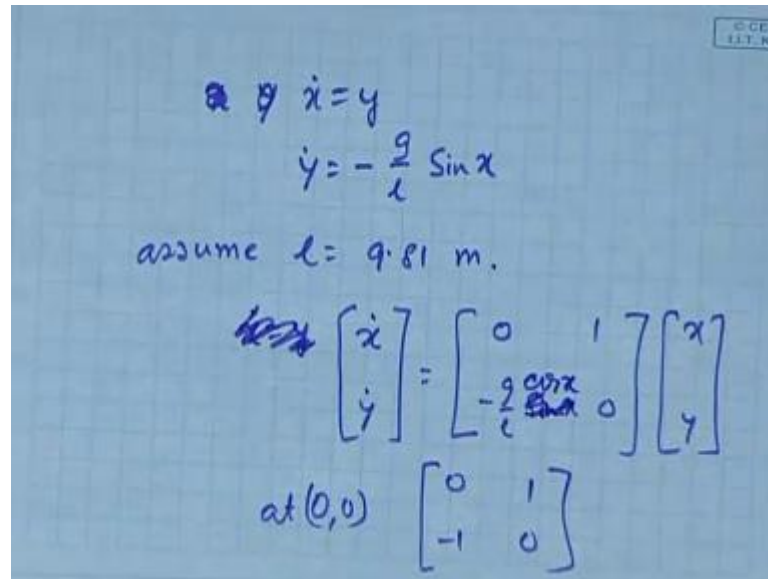 © CE
I.I.T. K
ẋ = y
ẏ = - g/l Sin x
assume l = 9.81 m.
[ẋ ẏ] = [0 1 -g/l cosx 0] [x y]
at (0,0) [0 1 -1 0]